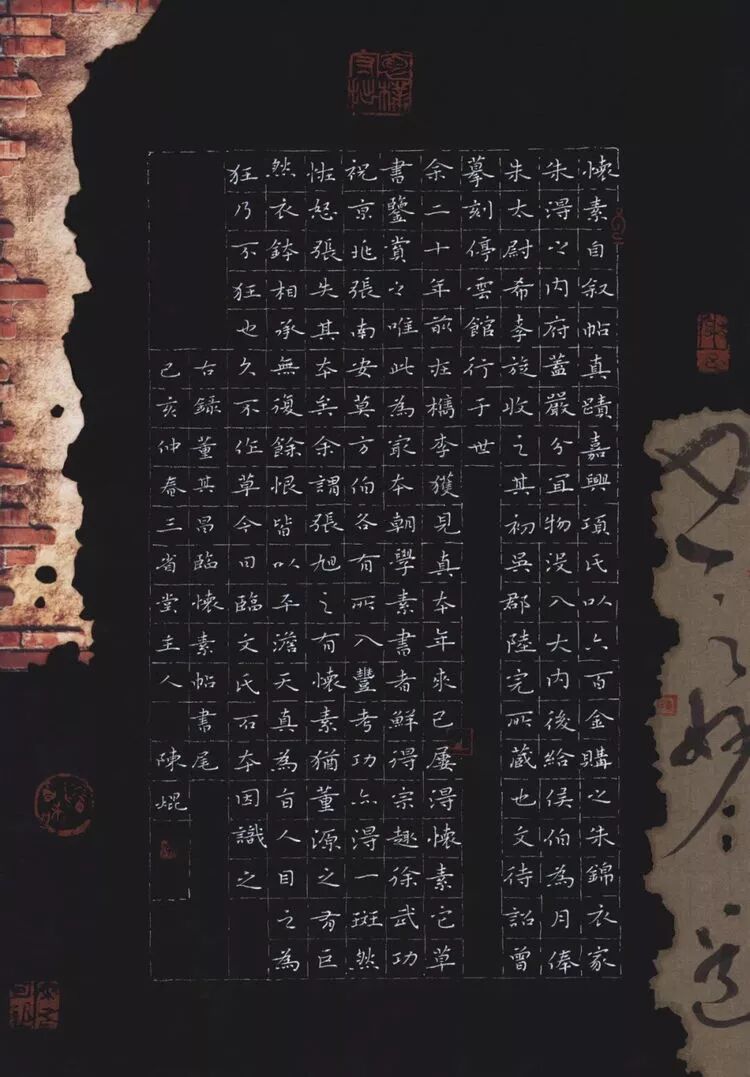 懷素自叙帖真蹟嘉興項氏以六百金購之朱錦衣家
朱得之内府蓋嚴分宜物没入大内後給侯伯為月俸
朱太尉希孝旋收之其初吳郡陸完所藏也文待詔曾
摹刻停雲館行于世
余二十年前在檇李獲見真本年來已屢得懷素它草
書鑒賞之唯此為最本朝學素書者鮮得宗趣徐武功
祝京兆張南安莫方伯各有所入豐考功亦得一斑然
性怒張失其本矣余謂張旭之有懷素猶董源之有巨
然衣鉢相承無復餘恨皆以平澹天真為旨人目之為
狂乃不狂也久不作草今日臨文氏石本因識之
右錄董其昌臨懷素帖書尾
己亥仲春三省堂主人 陳焜